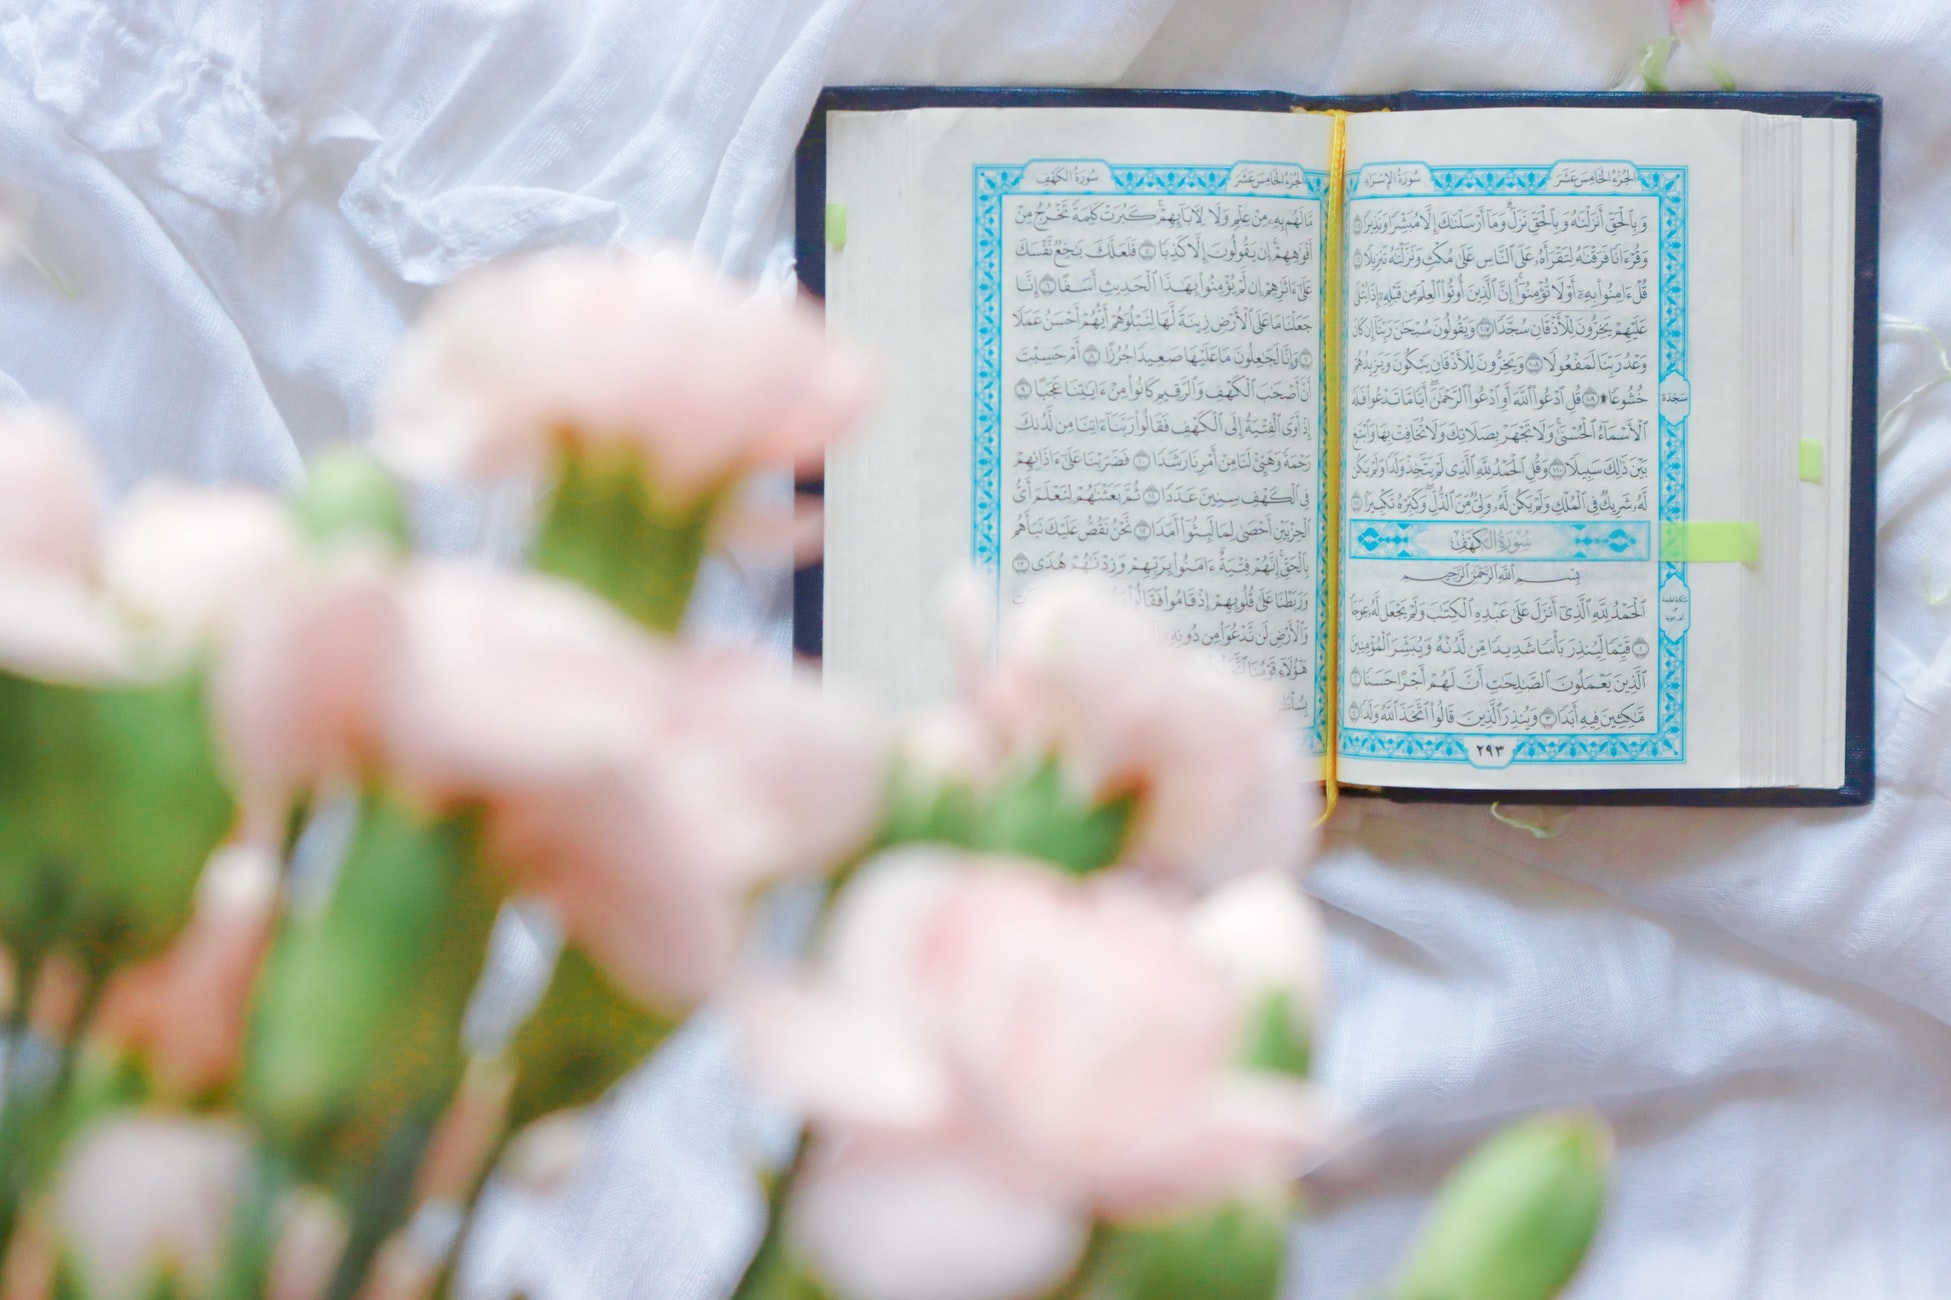 الجزء الخامس عشر
سورة الإسراء
وَبِٱلْحَقِّ أَنزَلْنَٰهُ وَبِٱلْحَقِّ نَزَلَ ۗ وَمَآ أَرْسَلْنَٰكَ إِلَّا مُبَشِّرًا وَنَذِيرًا ١٠٥
وَقُرْءَانًا فَرَقْنَٰهُ لِتَقْرَأَهُۥ عَلَى ٱلنَّاسِ عَلَىٰ مُكْثٍ وَنَزَّلْنَٰهُ تَنزِيلًا ١٠٦
قُلْ ءَامِنُوا۟ بِهِۦٓ أَوْ لَا تُؤْمِنُوٓا۟ ۚ إِنَّ ٱلَّذِينَ أُوتُوا۟ ٱلْعِلْمَ مِن قَبْلِهِۦٓ إِذَا يُتْلَىٰ
عَلَيْهِمْ يَخِرُّونَ لِلْأَذْقَانِ سُجَّدًا ١٠٧ وَيَقُولُونَ سُبْحَٰنَ رَبِّنَآ إِن كَانَ
وَعْدُ رَبِّنَا لَمَفْعُولًا ١٠٨ وَيَخِرُّونَ لِلْأَذْقَانِ يَبْكُونَ وَيَزِيدُهُمْ
خُشُوعًا ۩ ١٠٩ قُلِ ٱدْعُوا۟ ٱللَّهَ أَوِ ٱدْعُوا۟ ٱلرَّحْمَٰنَ ۖ أَيًّا مَّا تَدْعُوا۟ فَلَهُ
سجدة
ٱلْأَسْمَآءُ ٱلْحُسْنَىٰ ۚ وَلَا تَجْهَرْ بِصَلَاتِكَ وَلَا تُخَافِتْ بِهَا وَٱبْتَغِ
بَيْنَ ذَٰلِكَ سَبِيلًا ١١٠ وَقُلِ ٱلْحَمْدُ لِلَّهِ ٱلَّذِى لَمْ يَتَّخِذْ وَلَدًا وَلَمْ يَكُن
لَّهُۥ شَرِيكٌ فِى ٱلْمُلْكِ وَلَمْ يَكُن لَّهُۥ وَلِىٌّ مِّنَ ٱلذُّلِّ ۖ وَكَبِّرْهُ تَكْبِيرًۢا ١١١
سورة الكهف
بِسْمِ ٱللَّهِ ٱلرَّحْمَٰنِ ٱلرَّحِيمِ
ٱلْحَمْدُ لِلَّهِ ٱلَّذِىٓ أَنزَلَ عَلَىٰ عَبْدِهِ ٱلْكِتَٰبَ وَلَمْ يَجْعَل لَّهُۥ عِوَجَا
١ قَيِّمًا لِّيُنذِرَ بَأْسًا شَدِيدًا مِّن لَّدُنْهُ وَيُبَشِّرَ ٱلْمُؤْمِنِينَ
ٱلَّذِينَ يَعْمَلُونَ ٱلصَّٰلِحَٰتِ أَنَّ لَهُمْ أَجْرًا حَسَنًا ٢
مَّٰكِثِينَ فِيهِ أَبَدًا ٣ وَيُنذِرَ ٱلَّذِينَ قَالُوا۟ ٱتَّخَذَ ٱللَّهُ وَلَدًا ٤
٢٩٣
الجزء الخامس عشر
سورة الكهف
مَّا لَهُم بِهِۦ مِنْ عِلْمٍ وَلَا لِءَابَآئِهِمْ ۚ كَبُرَتْ كَلِمَةً تَخْرُجُ مِنْ
أَفْوَٰهِهِمْ ۚ إِن يَقُولُونَ إِلَّا كَذِبًا ٥ فَلَعَلَّكَ بَٰخِعٌ نَّفْسَكَ
عَلَىٰٓ ءَاثَٰرِهِمْ إِن لَّمْ يُؤْمِنُوا۟ بِهَٰذَا ٱلْحَدِيثِ أَسَفًا ٦ إِنَّا
جَعَلْنَا مَا عَلَى ٱلْأَرْضِ زِينَةً لَّهَا لِنَبْلُوَهُمْ أَيُّهُمْ أَحْسَنُ عَمَلًا
٧ وَإِنَّا لَجَٰعِلُونَ مَا عَلَيْهَا صَعِيدًا جُرُزًا ٨ أَمْ حَسِبْتَ
أَنَّ أَصْحَٰبَ ٱلْكَهْفِ وَٱلرَّقِيمِ كَانُوا۟ مِنْ ءَايَٰتِنَا عَجَبًا ٩
إِذْ أَوَى ٱلْفِتْيَةُ إِلَى ٱلْكَهْفِ فَقَالُوا۟ رَبَّنَآ ءَاتِنَا مِن لَّدُنكَ
رَحْمَةً وَهَيِّئْ لَنَا مِنْ أَمْرِنَا رَشَدًا ١٠ فَضَرَبْنَا عَلَىٰٓ ءَاذَانِهِمْ
فِى ٱلْكَهْفِ سِنِينَ عَدَدًا ١١ ثُمَّ بَعَثْنَٰهُمْ لِنَعْلَمَ أَىُّ
ٱلْحِزْبَيْنِ أَحْصَىٰ لِمَا لَبِثُوٓا۟ أَمَدًا ١٢ نَّحْنُ نَقُصُّ عَلَيْكَ نَبَأَهُم
بِٱلْحَقِّ ۚ إِنَّهُمْ فِتْيَةٌ ءَامَنُوا۟ بِرَبِّهِمْ وَزِدْنَٰهُمْ هُدًى ١٣
وَرَبَطْنَا عَلَىٰ قُلُوبِهِمْ إِذْ قَامُوا۟ فَقَالُوا۟
وَٱلْأَرْضِ لَن نَّدْعُوَا۟ مِن دُونِهِۦٓ
هَٰٓؤُلَآءِ قَوْمُنَا